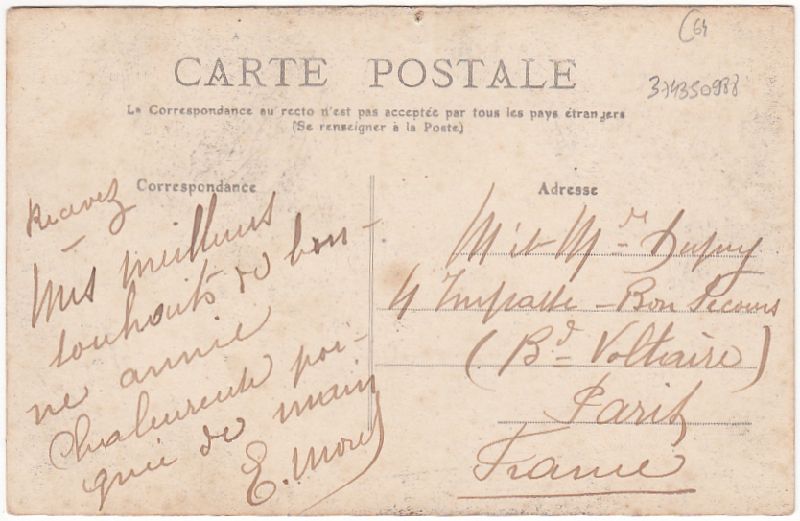 64
374350988
CARTE POSTALE
La Correspondance au recto n'est pas acceptée par tous les pays étrangers
(Se renseigner à la Poste)
Correspondance
Recevez
Mes meilleurs
souhaits de bon-
ne année
Chaleureuse poi-
gnée de main
E. Morel
Adresse
Mr et Mme Dupuy
4 Impasse - Bon Secours
(Bd Voltaire)
Paris
France